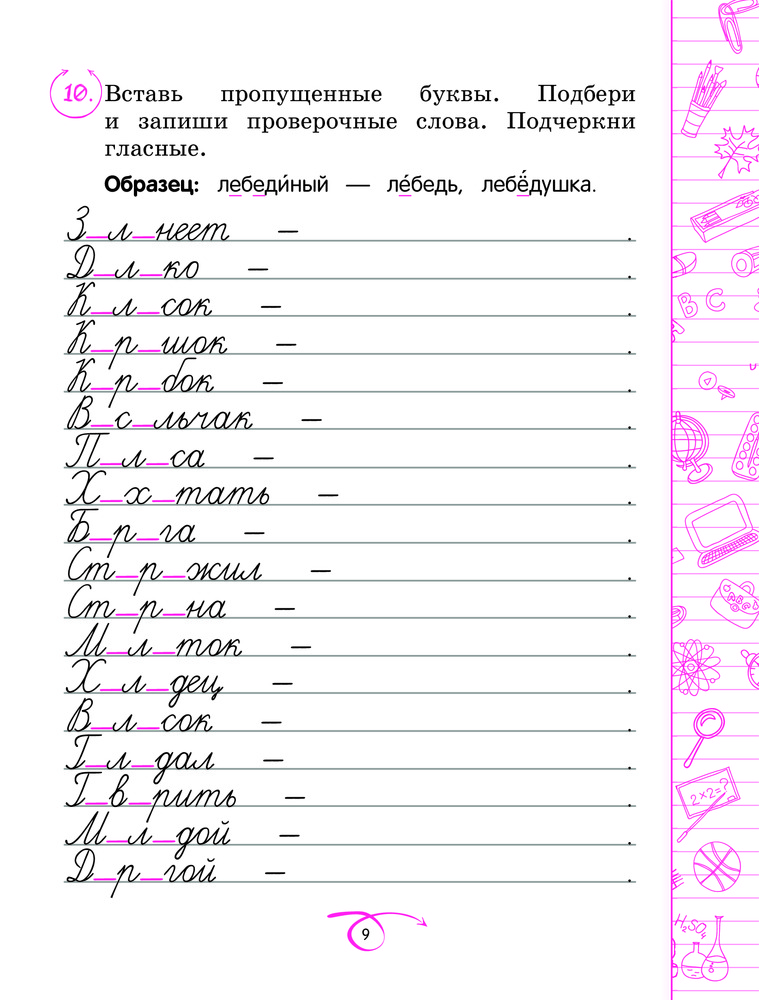 10. Вставь пропущенные буквы. Подбери
и запиши проверочные слова. Подчеркни
гласные.
Образец: лебеди́ный — ле́бедь, лебё́душка.
З_л_неет – .
Д_л_ко – .
К_л_сок – .
К_р_шок – .
К_р_бок – .
В_с_льчак – .
П_л_са – .
Х_х_тать – .
Б_р_га – .
Ст_р_жил – .
Ст_р_на – .
М_л_ток – .
Х_л_дец – .
В_л_сок – .
Г_л_дал – .
Г_в_рить – .
М_л_дой – .
Д_р_гой – .
9
B C
A
2×2=?
H₂SO₄